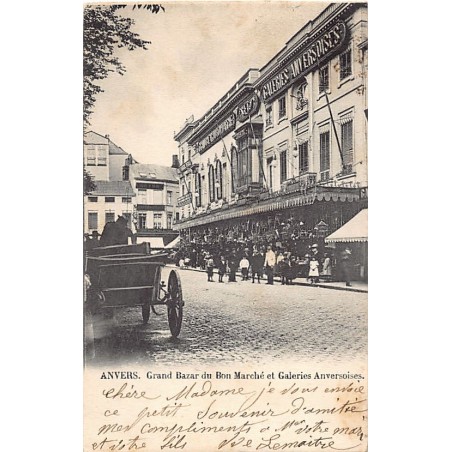 GALERIES ANVERSOISES
ANVERS. Grand Bazar du Bon Marché et Galeries Anversoises.
chère Madame je vous envoie
ce petit Souvenir d'amitié
mes compliments a Mr votre mari
et votre fils Lemaitre